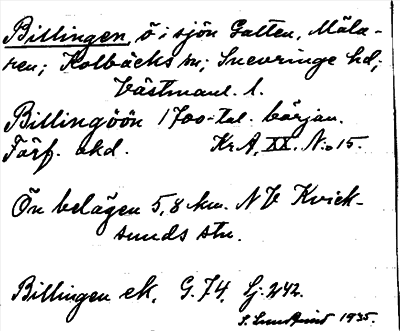 Billingen, ö i sjön Galten, Mäla-
ren; Kolbäcks sn; Snevringe hd;
Västmanl. l.
Billingöön 1700-tal. början.
Förf. okd. Kr A, XX. No 15.
Ön belägen 5,8 km. NV Kvick-
sunds stn.
Billingen ek. G. 74. Lj. 242.
S. Lundquist 1935.